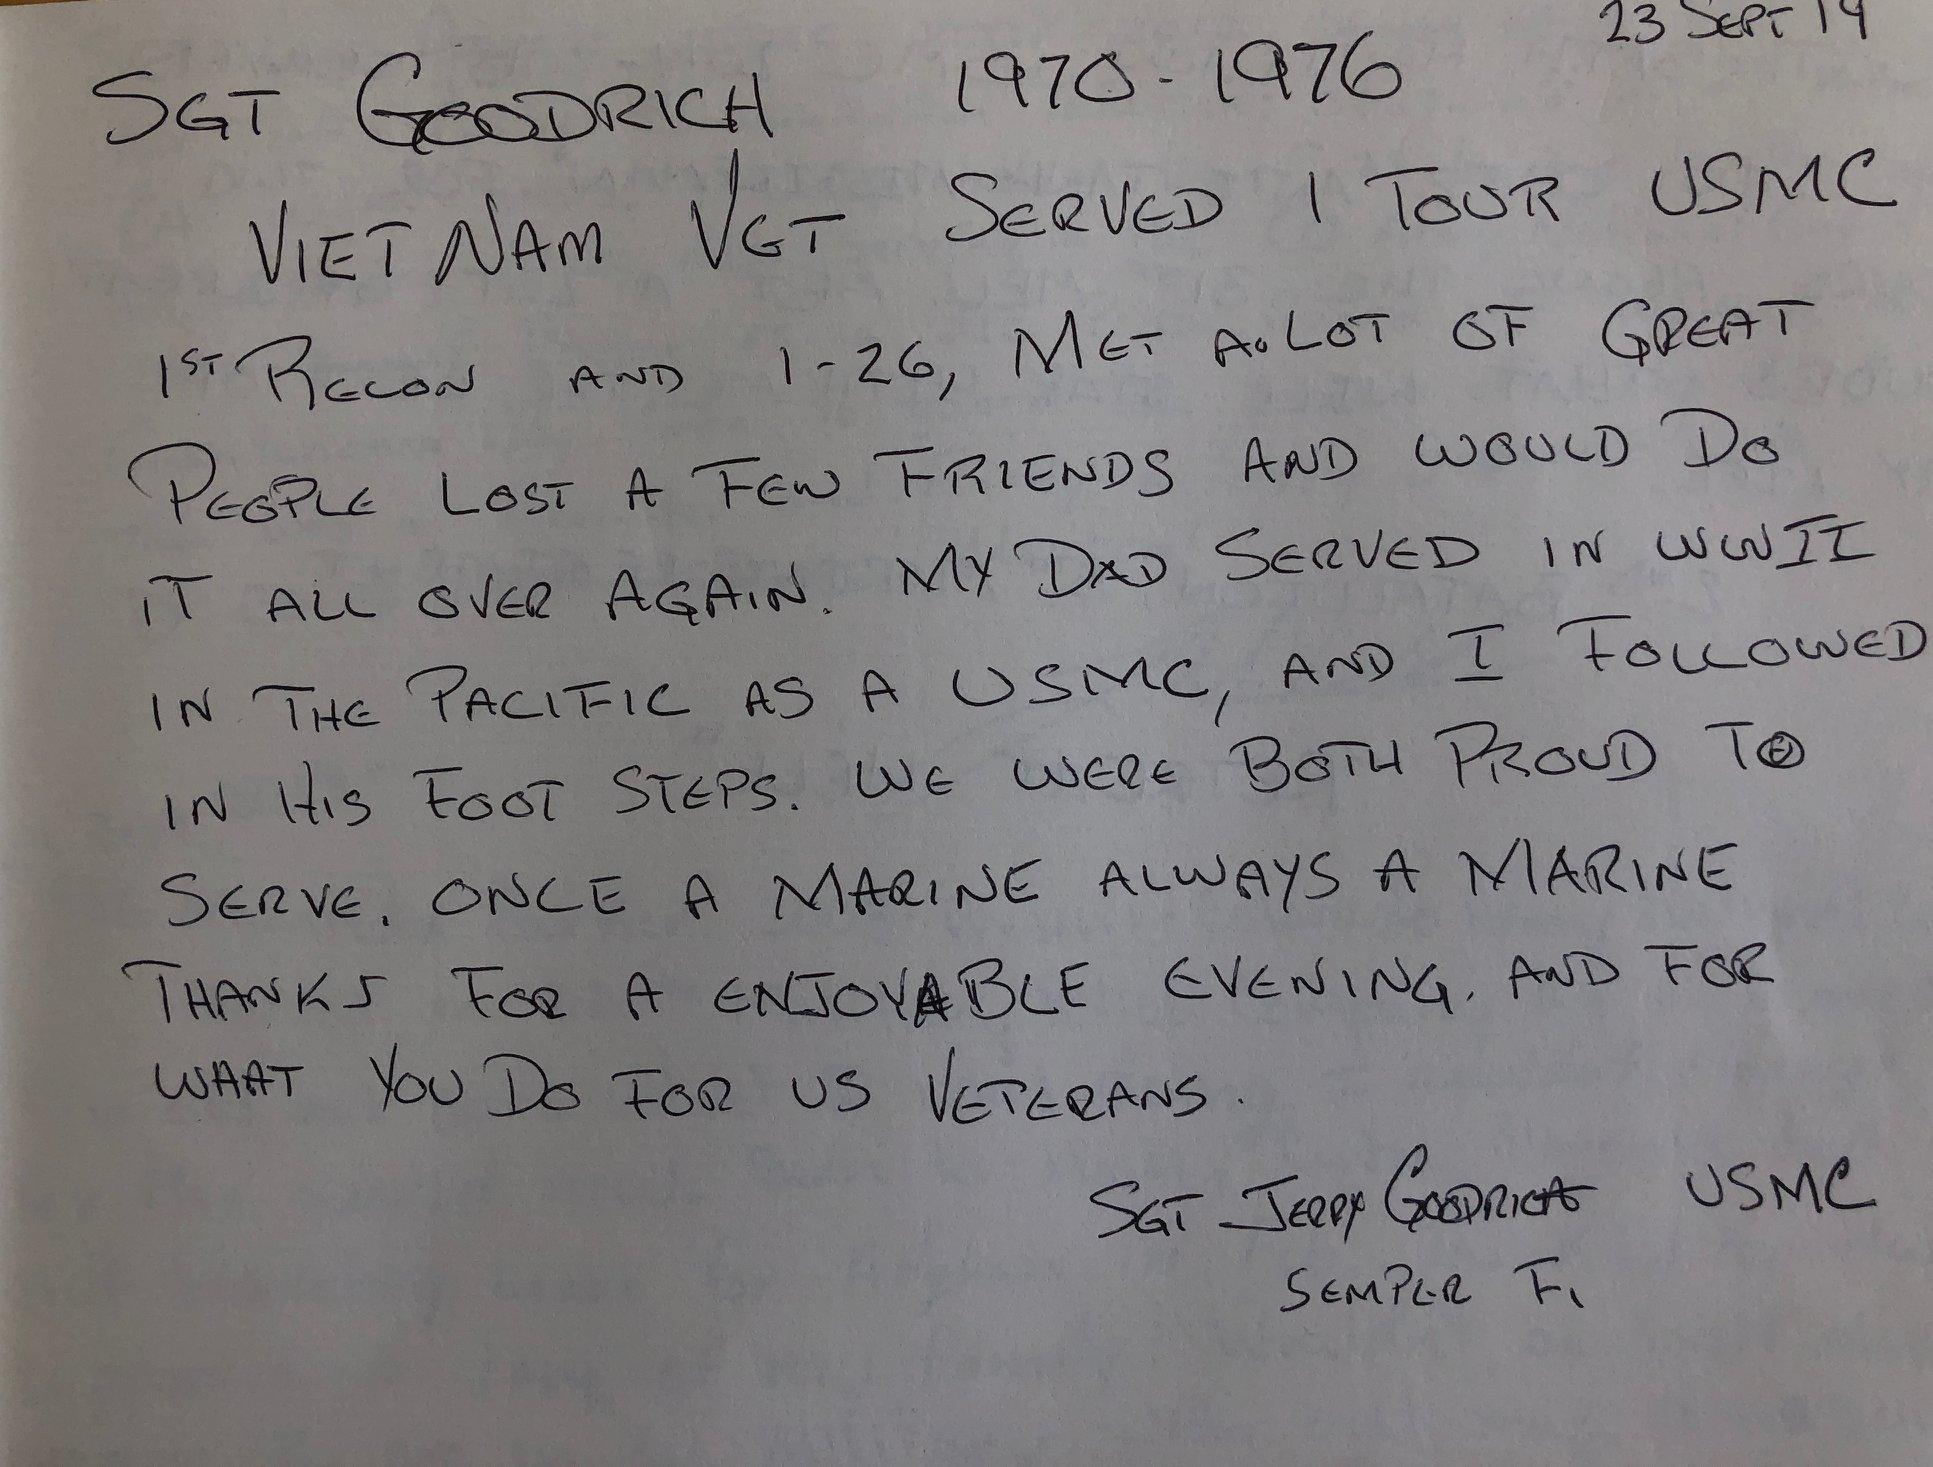 23 SEPT 19
SGT GOODRICH 1970-1976
VIET NAM VET SERVED 1 TOUR USMC
1ST RECON AND 1-26, MET A.LOT OF GREAT
PEOPLE LOST A FEW FRIENDS AND WOULD DO
IT ALL OVER AGAIN. MY DAD SERVED IN WWII
IN THE PACIFIC AS A USMC, AND I FOLLOWED
IN HIS FOOT STEPS. WE WERE BOTH PROUD TO
SERVE. ONCE A MARINE ALWAYS A MARINE
THANKS FOR A ENJOYABLE EVENING. AND FOR
WHAT YOU DO FOR US VETERANS.
SGT JERRY GOODRICH USMC
SEMPER FI